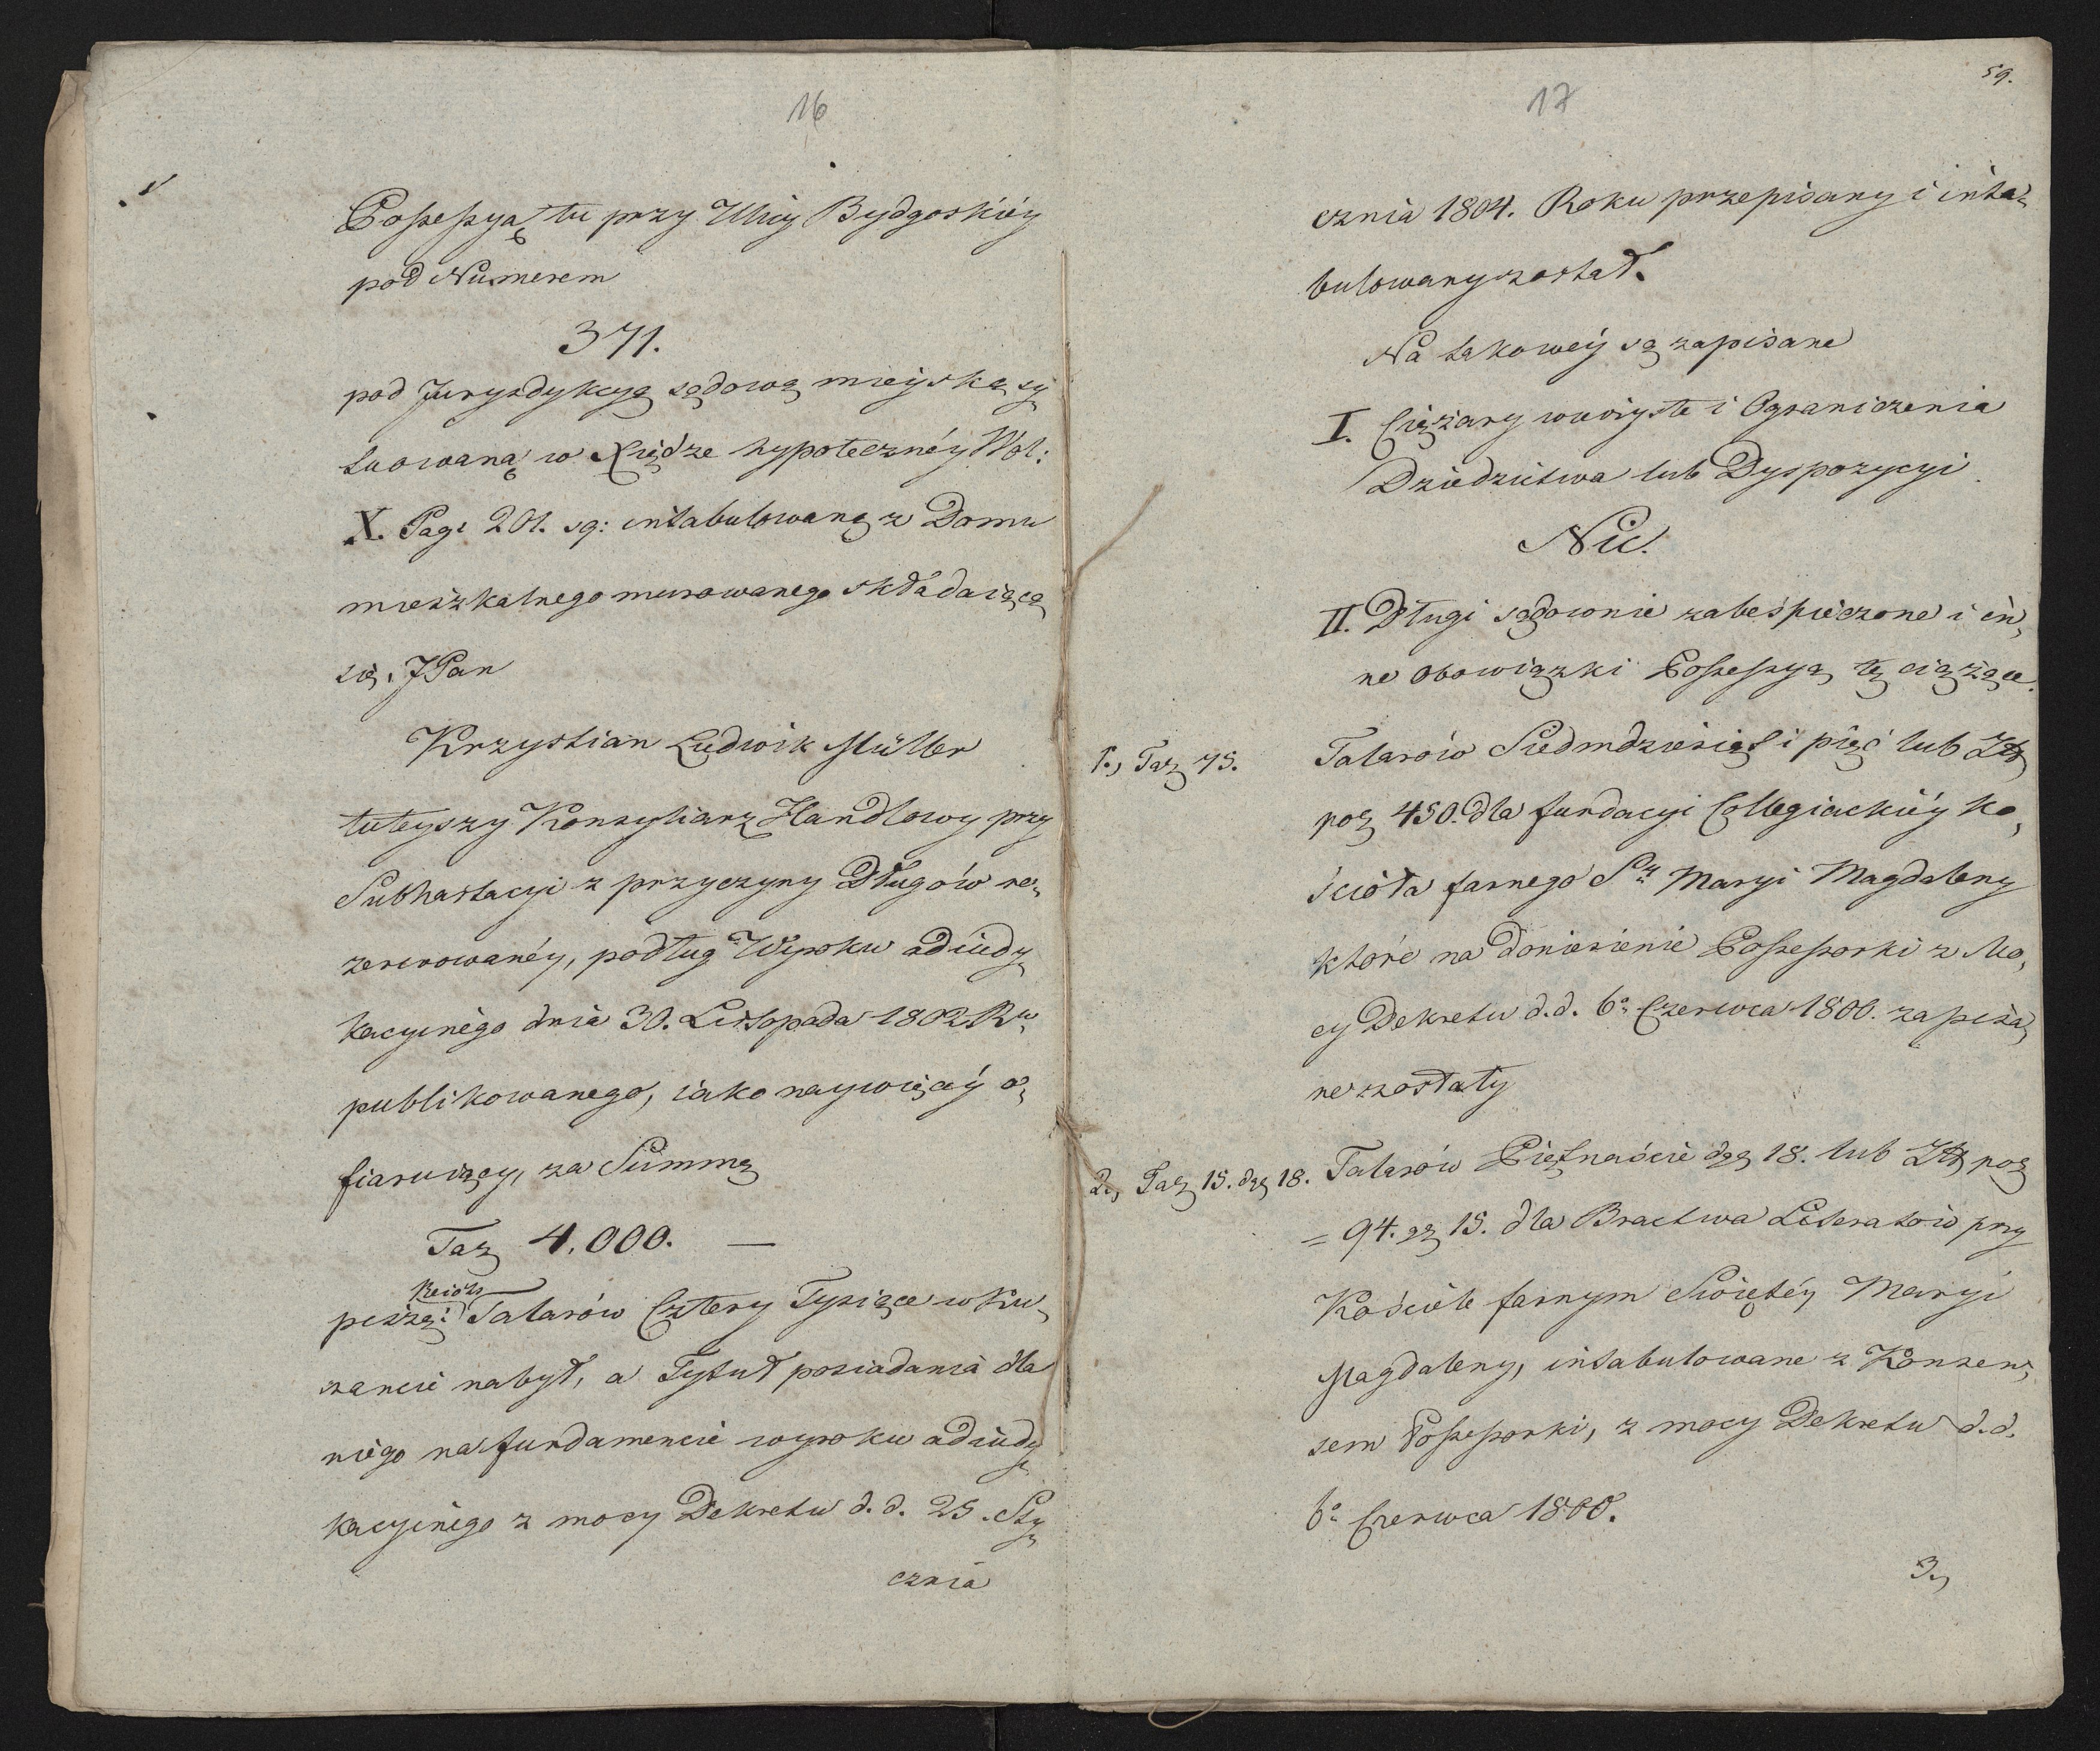 16
Possessya tu przy Ulicy Bydgoskiéy
pod Numerem
371.
pod Jurysdykcyą sądową mieyską sy,
tuowaną w Xiędze hypotecznéy Vol:
X. Pag: 201. sq: intabulowaną z Domu
mieszkalnego murowanego składaiącą
się, JPan
Krzystian Ludwik Müller
tuteyszy Konsyliarz Handlowy przy
Subhastacyi z przyczyny Długów re,
zerwowanéy, podług Wyroku adiudy,
kacyinégo dnia 30. Listopada 1802 Ru
publikowanego, iako naywięcéy o,
fiaruiący, za Summę
Tal 4,000. —
piszę: Talarów Cztery Tysiące w Ku,
rancie nabył, a Tytuł posiadania dla
niégo na fundamencie wyroku adiudy,
kacyinégo z mocy Dekretu d. d. 25. Sty,
cznia
59.
17
cznia 1804. Roku przepisany i inta,
bulowany został.
Na takowéy są zapisane
I. Ciężary wieczyste i Ograniczenia
Dziedzictwa lub Dyspozycyi
Nic.
II. Długi sądownie zabeśpieczone i in,
ne obowiązki Possessyą tę ciążące.
1., Tal 75. Talarów Siedmdziesiąt i pięć lub Złt
pol 450. dla fundacyi Collegiackiéy Ko,
ścioła farnego S. Maryi Magdaleny
któré na doniesienie Possessorki z Mo,
cy Dekretu d. d. 6o Czerwca 1800. zapisa,
ne zostały
2., Tal 15. dgg 18. Talarów Piętnaście dgg 18. lub Złt pol
= 94. gg 15. dla Bractwa Literatów przy
Kościele farnym Swiętéy Maryi
Magdaleny, intabulowane z Konsen,
sem Possessorki, z mocy Dekretu d. d.
6o Czerwca 1800.
3.,